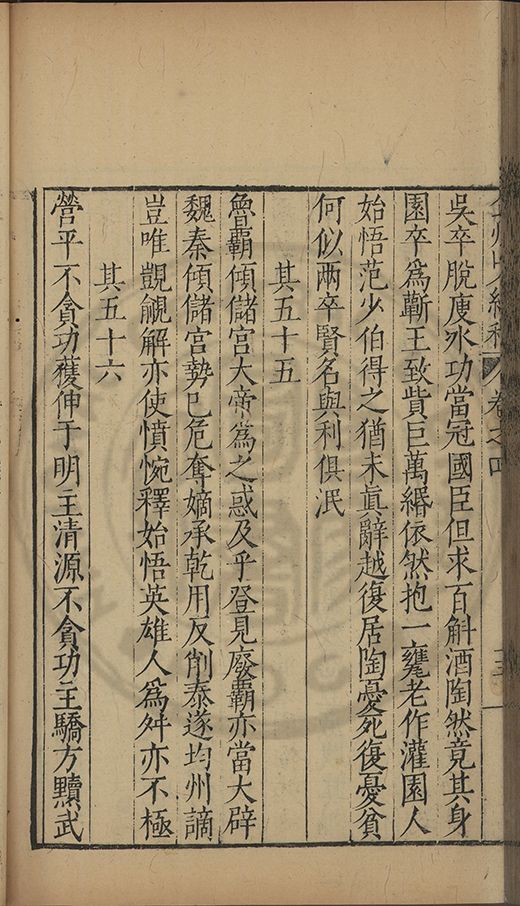 卷之四
吳卒脫庾冰功當冠國臣但求百斛酒陶然竟其身
園卒爲蘄王致貲巨萬緡依然抱一甕老作灌園人
始悟范少伯得之猶未眞辭越復居陶憂死復憂貧
何似兩卒賢名與利俱泯
其五十五
魯霸傾儲宮大帝爲之惑及乎登見廢霸亦當大辟
魏秦傾儲宮勢已危奪嫡承乾用反削泰遂均州謫
豈唯覬覦解亦使憤惋釋始悟英雄人爲舛亦不極
其五十六
營平不貪功獲伸于明主清源不貪功主驕方黷武